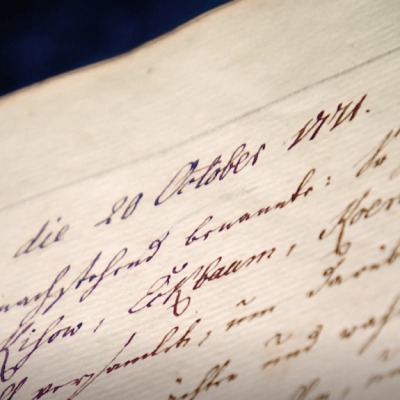 die 20 October 1771.
nachstehend benannte: So
Kisow, Eckbaum, Koen
versamlet, um darüb
und wah